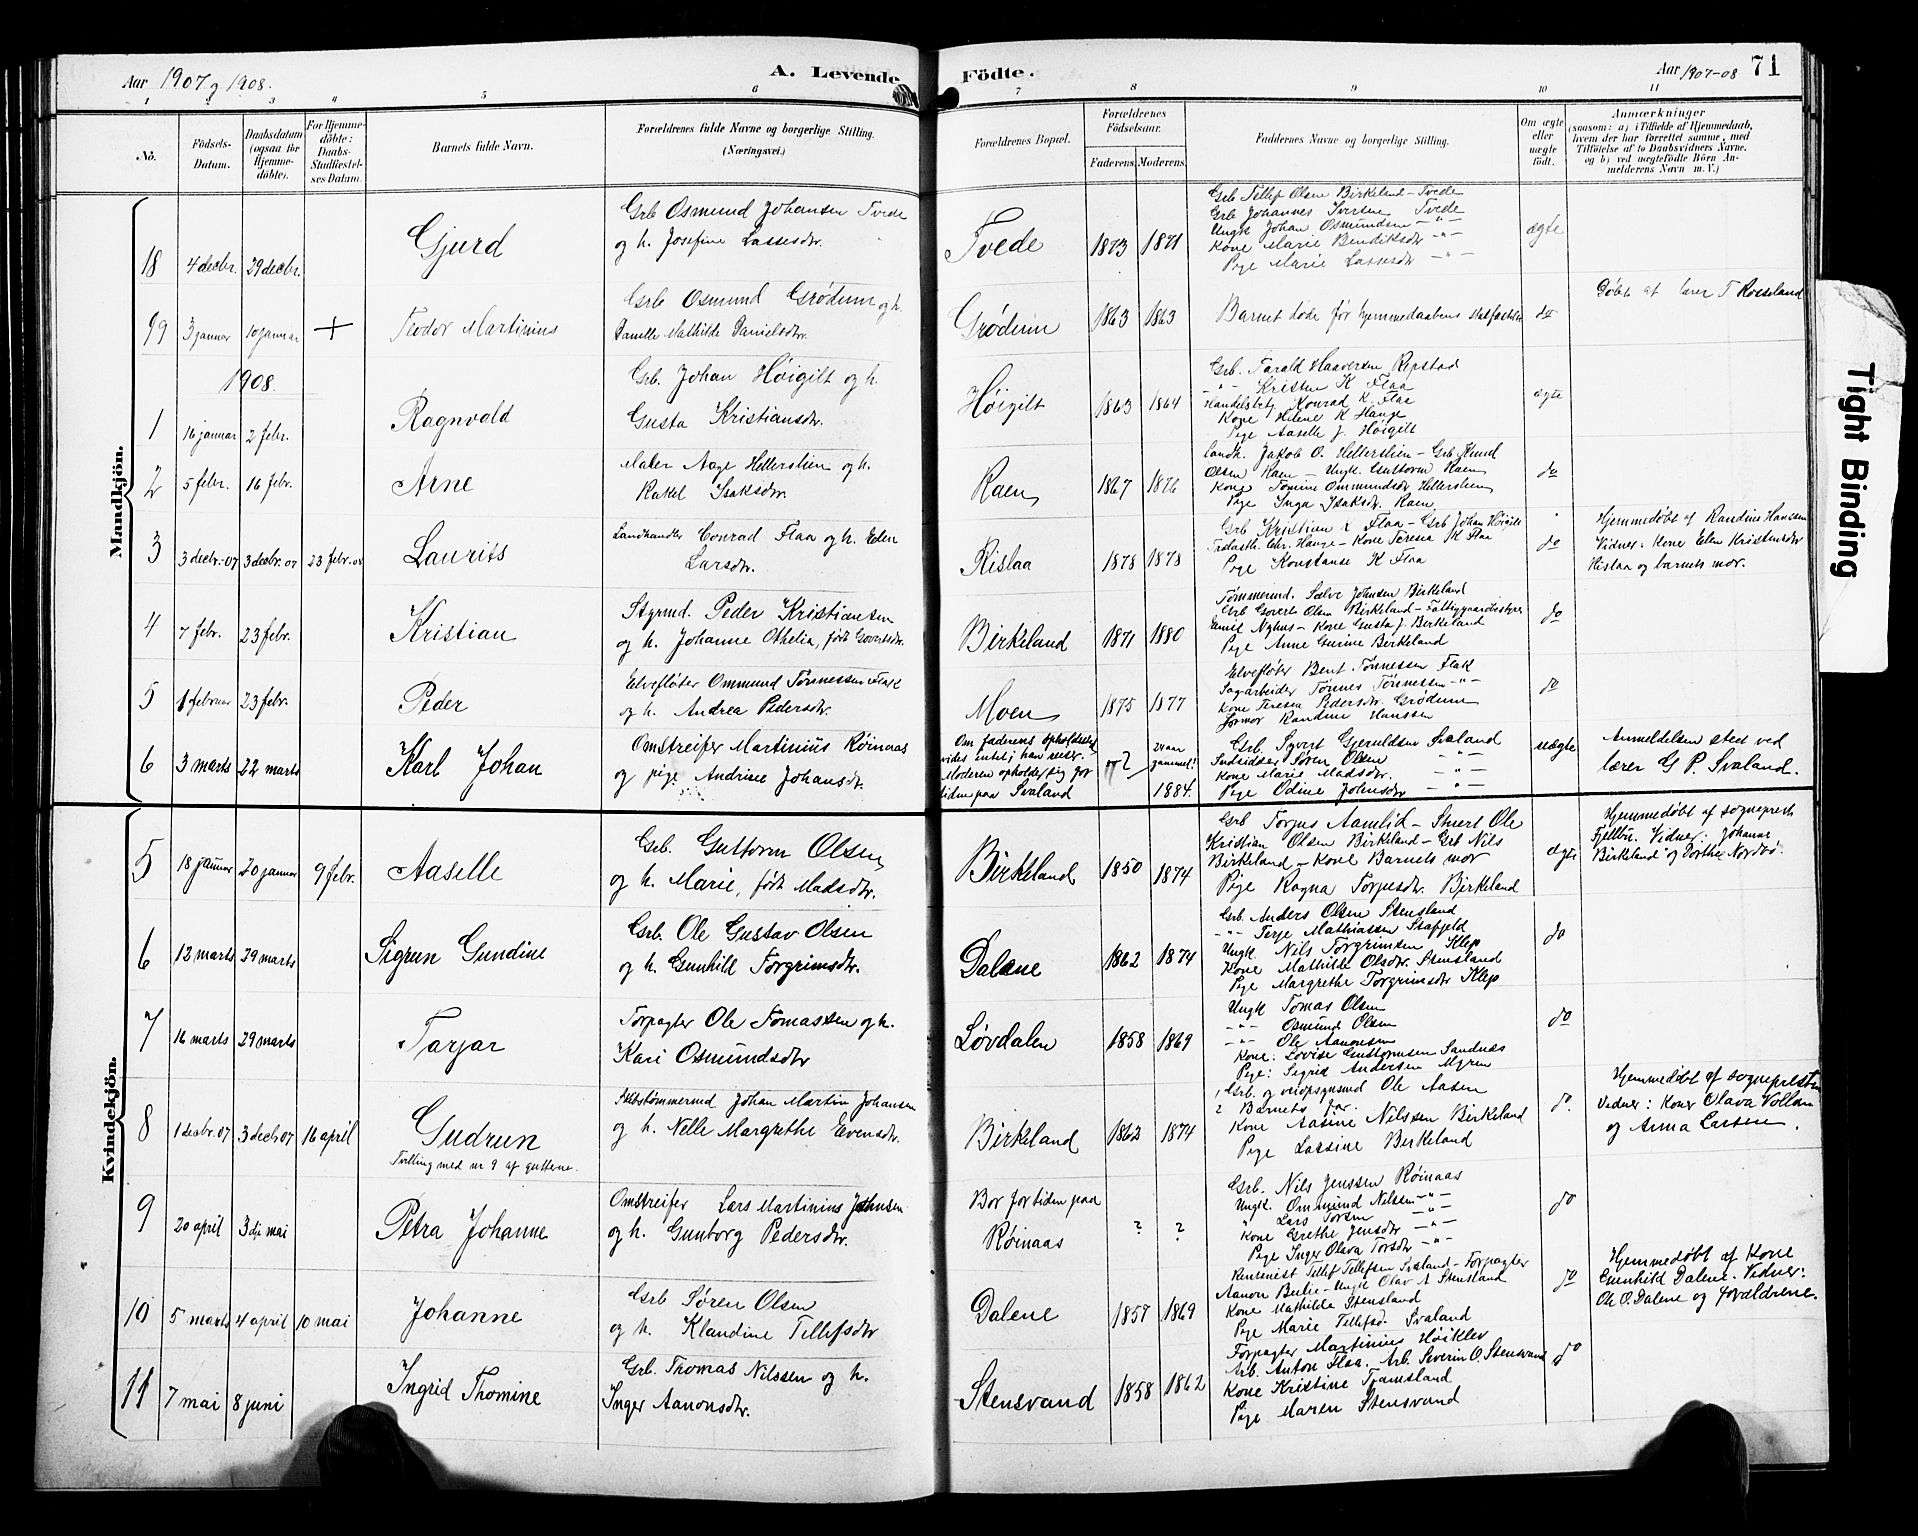 Aar 1907 og 1908.
A. Levende Födte.
Aar 1907-08 71
1 2 3 4 5 6 7 8 9 10 11
No.
Födsels-Datum.
Daabsdatum (ogsaa for Hjemme-döbte).
For Hjemme-döbte: Daabs-Stadfæstel-ses Datum.
Barnets fulde Navn.
Forældrenes fulde Navne og borgerlige Stilling. (Næringsvei.)
Forældrenes Bopæl.
Forældrenes Födselsaar.
Faderens. Moderens.
Faddernes Navne og borgerlige Stilling.
Om ægte eller uægte födt.
Anmærkninger
(saasom: a) i Tilfælde af Hjemmedaab, hvem der har forrettet samme, med Tilföielse af to Daabsvidners Navne, og b) ved uægtefödte Börn An-melderens Navn m. V.)
Mandkjön.
18 4 decbr. 29 decbr. Gjurd
Grb Osmund Johansen Tvede
og h. Josefine Lassesdtr.
Tvede 1873 1871
Grb Tellef Olsen Birkeland - Tvede
Grb Johannes Iversen Tvede
Ungk Johan Osmundsen -"-
Kone Marie Bendiksdtr -"-
Pige Marie Lassesdtr -"-
ægte
19 3 januar 10 januar + Teodor Martinius
Grb Osmund Grødum og h.
Pernille Mathilde Danielsdtr.
Grødum 1863 1863
Barnet døde før hjemmedaabens stadfæstelse
do
Døbt af lærer T Rosseland
1908.
1 16 januar 2 febr. Ragnvald
Grb. Johan Høigilt og h.
Gusta Kristiansdtr.
Høigilt 1863 1864
Grb. Tarald Haaversen Repstad
-"- Kristen K Flaa
Handelsbetj. Konrad K. Flaa
Kone Helene K Hauge
Pige Aaselle J. Høigilt
ægte
2 5 febr. 16 febr. Arne
Maler Aage Hellerslien og h.
Rakel Isaksdtr.
Raen 1867 1876
Landh. Jakob O. Hellerslien - Grb Knud
Olsen Raen - Ungk. Guttorm Raen
Kone Tomine Ommundsdtr Hellerslien
Pige Inga Isaksdtr. Raen
do
3 3 decbr. 07 3 decbr. 07 23 febr. 08 Laurits
Landhandler Conrad Flaa og h. Elen
Larsdtr.
Rislaa 1878 1878
Grb Kristen K Flaa - Grb Johan Høigilt
Chr. Hauge - Kone Teresia K Flaa
Pige Konstanse K Flaa
do
Hjemmedøbt af Randine Hanssen
Vidner: Kone Elen Kristensdtr
Rislaa og barnets mor.
4 7 febr. 23 febr. Kristian
Styrmd. Peder Kristiansen
og h. Johanne Othelia, født Govertsdtr.
Birkeland 1871 1880
Tømmermd. Salve Johnsen Birkeland
Grb Govert Olsen Birkeland - Fattiggaardsbestyrer
Emil Nyhus - Kone Gusta J. Birkeland
Pige Anne Gurine Birkeland
do
5 1 februar 23 febr. Peder
Elvefløter Ommund Tønnessen Flak
og h. Andrea Pedersdtr.
Moen 1875 1877
Elvefløter Bent Tønnessen Flak
Sagarbeider Tønnes Tønnessen -"-
Kone Teresa Pedersdtr. Grødum
Jormor Randine Hanssen
do
6 3 marts 22 marts Karl Johan
Omstreifer Martinius Røinaas
og pige Andrine Johansdtr.
Om faderens opholdssted
vides intet; han reiser.
Moderen opholder sig for
tiden paa Svaland
? 24 aar gammel! 1884.
Grb. Syvert Gjeruldsen Svaland
Indsidder Søren Olsen -"-
Kone Marie Madsdtr. -"-
Pige Odine Johnsdtr -"-
uægte
Anmeldelsen skeet ved
lærer G P. Svaland.
Kvindekjön.
5 18 januar 20 januar 9 febr. Aaselle
Grb. Guttorm Olsen
og h. Marie, født Madsdtr.
Birkeland 1850 1874
Grb Torjus Aamlid - Stuert Ole
Kristian Olsen Birkeland - Grb Nils
Birkeland - Kone Barnets mor
Pige Ragna Torjusdtr. Birkeland
ægte
Hjemmedøbt af sogneprest
Fjelltun. Vidner: Johanne
Birkeland og Dorthe Nordbø.
6 12 marts 29 marts Sigrun Gundine
Grb. Ole Gustav Olsen
og h. Gunhild Torgrimsdtr.
Dalene 1862 1874
Grb. Anders Olsen Stensland
-"- Terje Mathiassen Stafjeld
Ungk Nils Torgrimsen Klep
Kone Mathilde Olsdtr. Stensland
Pige Margrethe Torgrimsdtr Klep
do
7 16 marts 29 marts Tarjar
Forpagter Ole Tomassen og h.
Kari Osmundsdtr
Løvdalen 1858 1869
Ungk Tomas Olsen
-"- Osmund Olsen
-"- Ole Aanonsen
Kone: Lovise Guttormsen Sandnes
Pige: Sigrid Andersen Myren
do
8 1 decbr. 07 3 decb 07 16 april Gudrun
Tvilling med nr 9 af guttene.
Skibstømmermd Johan Martin Johansen
og h. Nelle Margrethe Evensdtr.
Birkeland 1862 1874
1 Grb. og veiopsynsmd Ole Aasen
2 Barnets far.
Kone Aasine Nilssen Birkeland
Pige Lassine Birkeland
do.
Hjemmedøbt af sogneprester
Vidner: Kone Olava Vollan
og Anna Larsen.
9 20 april 3die mai Petra Johanne
Omstreifer Lars Martinius Johnsen
og h. Gunborg Pedersdtr.
Bor for tiden paa
Røinaas ? ?
Grb. Nils Jenssen Røinaas
Ungk. Ommund Nilssen -"-
" Lars Torsen -"-
Kone Grethe Jensdtr -"-
Pige Inger Olava Torsdtr -"-
do
10 5 marts 4 april 10 mai Johanne
Grb Søren Olsen
og h. Klandine Tellefsdtr
Dalene 1857 1869
Rensenist Tellef Tellefsen Svaland - Forpagter
Aanon Berlie - Ungk Olav A Stensland
Kone Mathilda Stensland
Pige Marie Tellefsd. Svaland
do
Hjemmedøbt af Kone
Gunhild Dalene. Vidner:
Ole O. Dalene og forældrene.
11 7 mai 8 juni Ingrid Thomine
Grb. Thomas Nilssen og h.
Inger Aanonsdtr.
Stensvand 1858 1862
Forpagter Martinius Høiklev
Arb. Anton Flaa. Arb. Severin O. Stensvand
Kone Kristine Tjamsland
Pige Maren Stensvand
do
Tight Binding